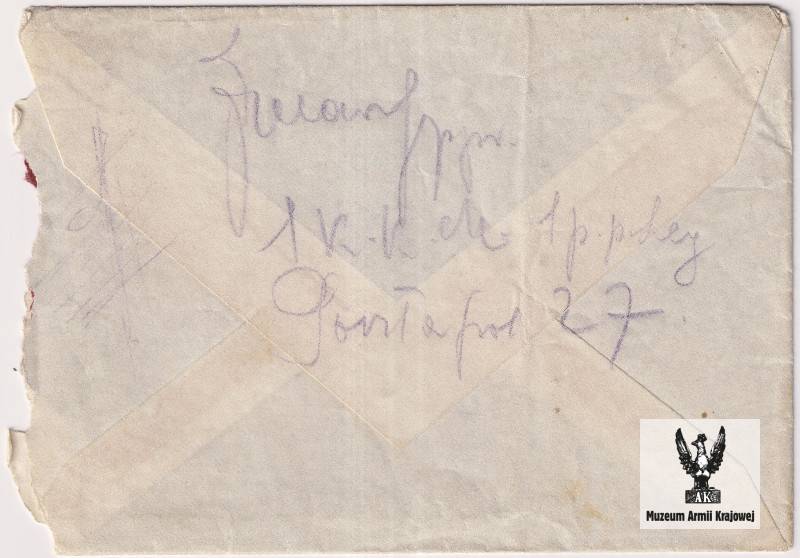 ppor.
1 K.K.M. 1 p.p.Leg
Poczta pol 27.
AK
Muzeum Armii Krajowej